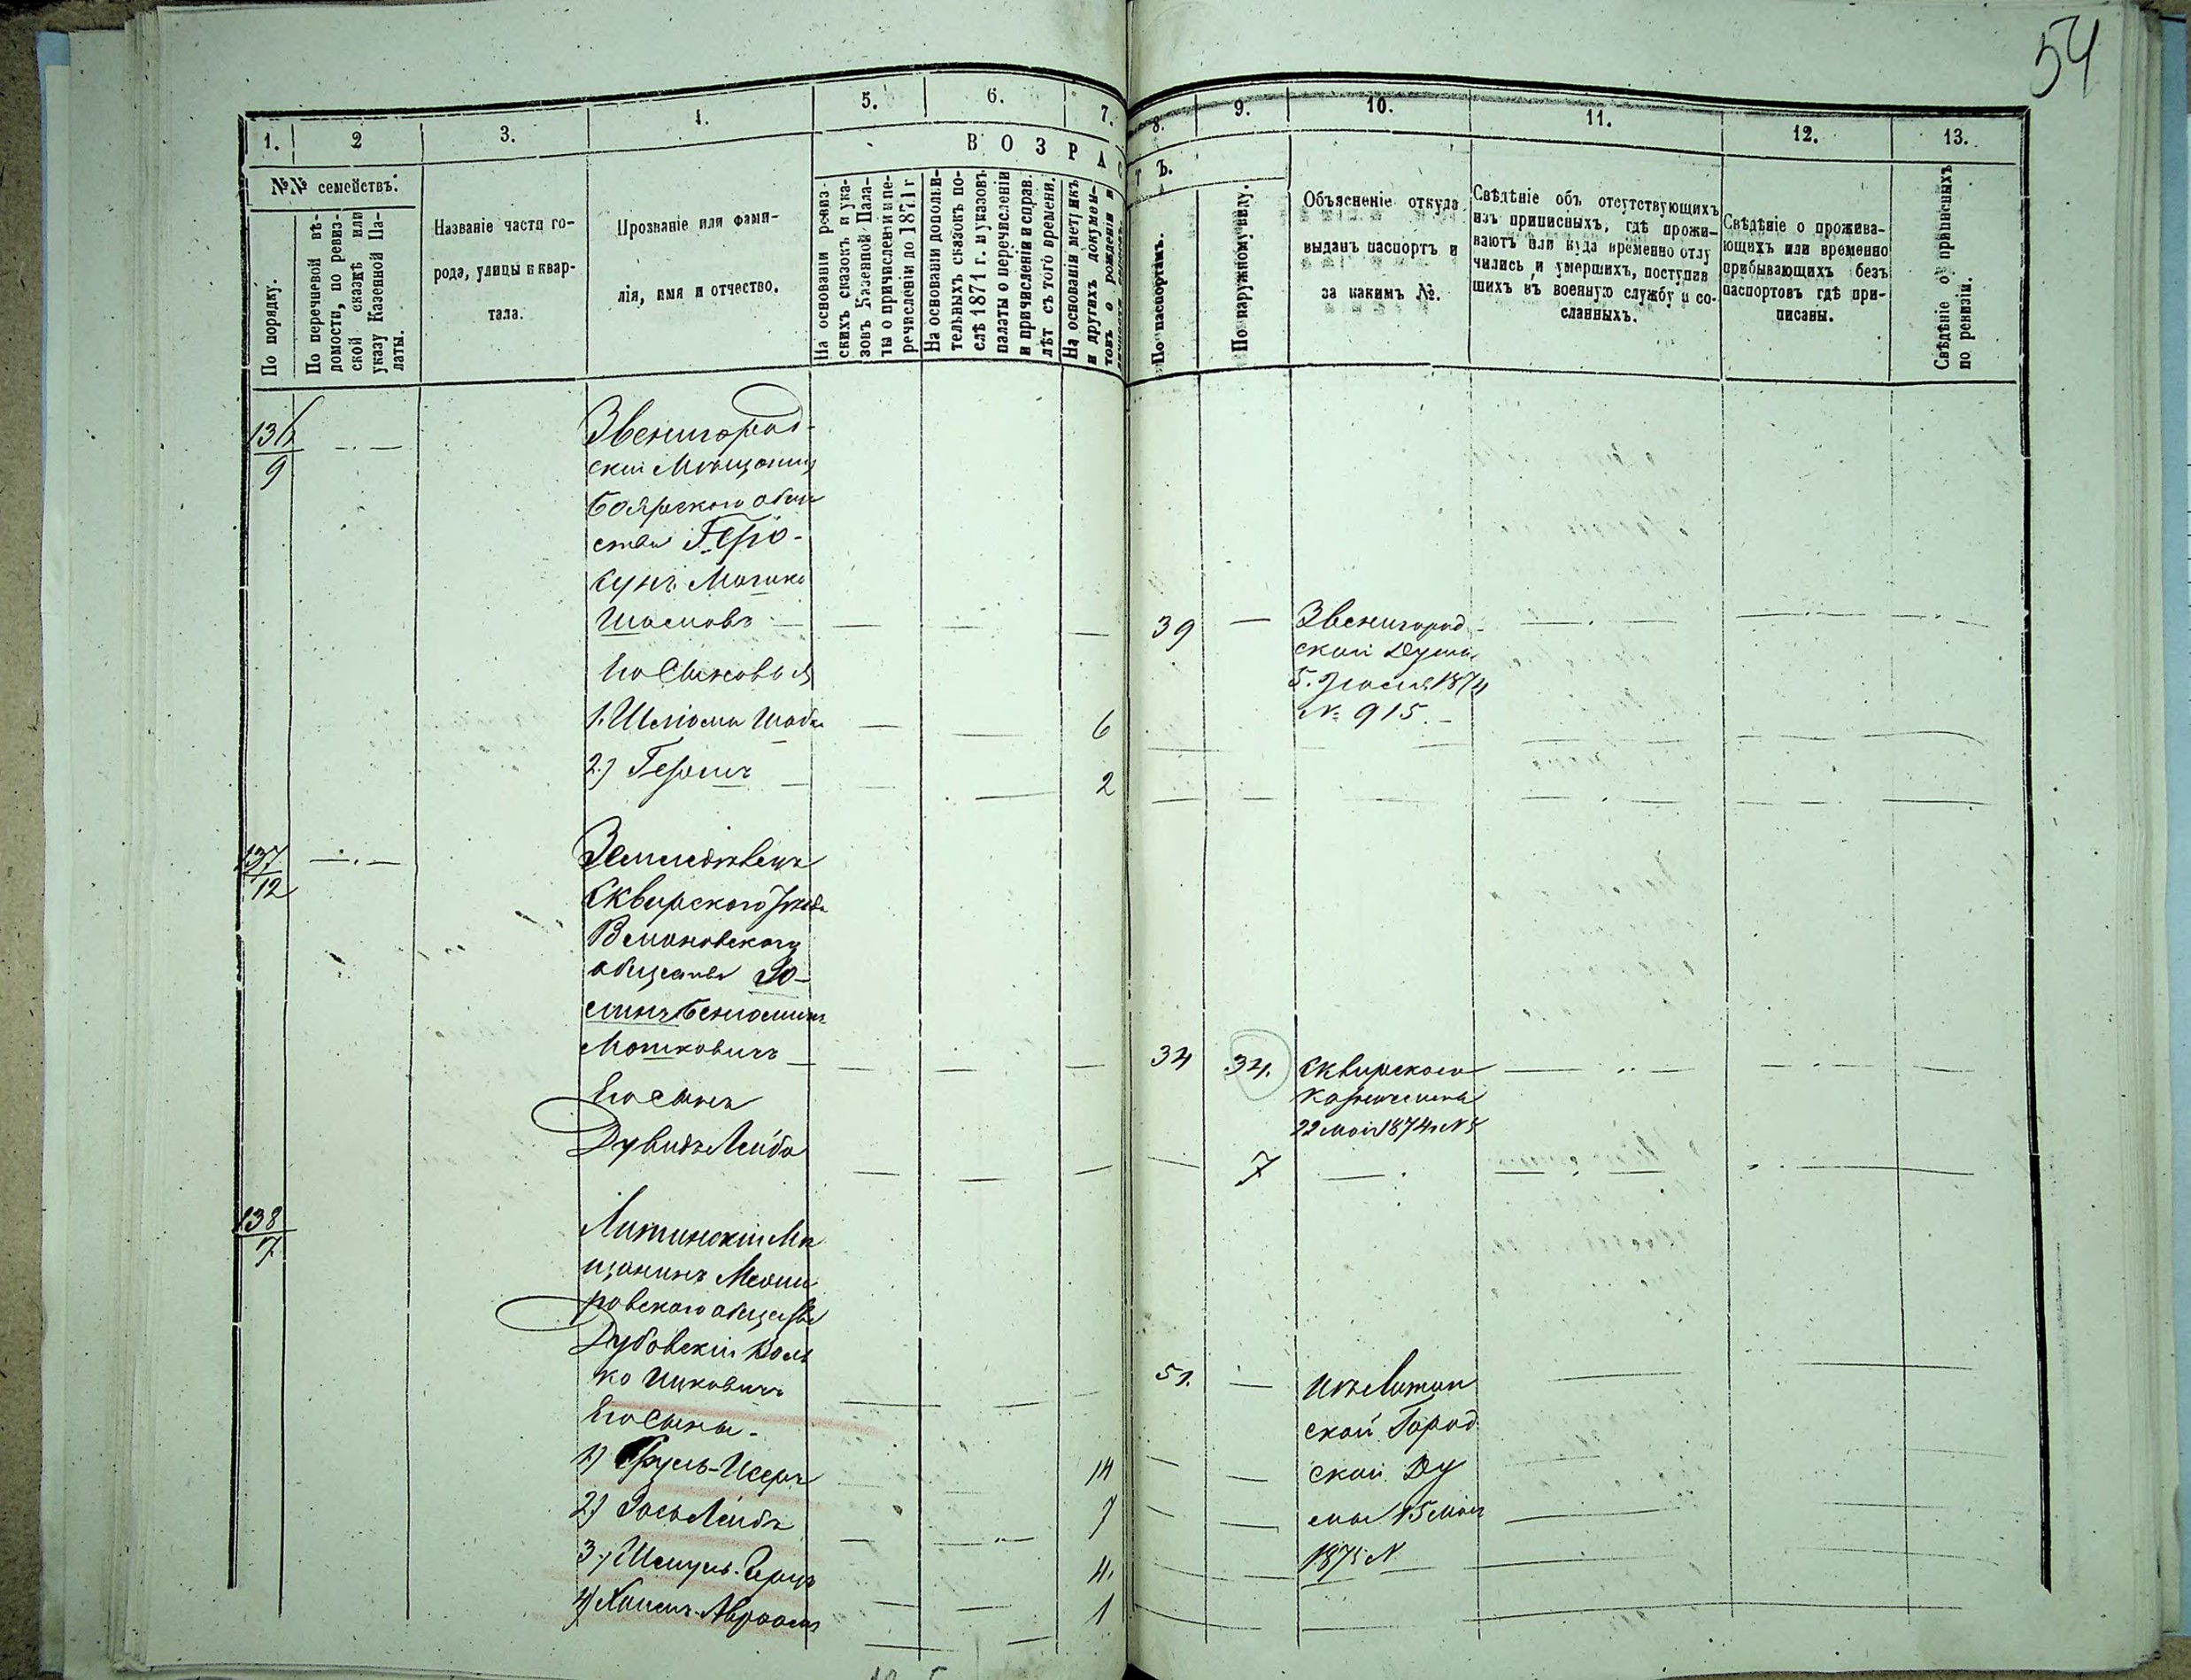 54
1. 2 3. 4. 5. 6. 7. 8. 9. 10. 11. 12. 13.
№№ семействъ.
По порядку.
По перечневой вѣ-
домости, по ревиз-
ской сказкѣ или
указу Казенной Па-
латы.
Названіе части го-
рода, улицы и квар-
тала.
Прозваніе или фами-
лія, имя и отчество.
ВОЗРАСТЪ.
На основаніи ревиз-
скихъ сказокъ и ука-
зовъ Казенной Пала-
ты о причисленіи и пе-
речисленіи до 1871 г
На основаніи дополни-
тельныхъ сказокъ по-
слѣ 1871 г. и указовъ
палаты о перечисленіи
и причисленіи и справ.
лѣт съ того времени.
На основаніи метрикъ
и другихъ докумен-
товъ о рожденіи и
По паспортамъ.
По наружному виду.
Объясненіе откуда
выданъ паспортъ и
за какимъ №.
Свѣдѣніе объ отсутствующихъ
изъ приписныхъ, гдѣ прожи-
ваютъ или куда временно отлу
чились и умершихъ, поступив
шихъ въ военную службу и со-
сланныхъ.
Свѣдѣніе о прожива-
ющихъ или временно
прибывающихъ безъ
паспортовъ гдѣ при-
писаны.
Свѣдѣніе о приписныхъ
по ревизіи.
136
9
Звенигород-
скій Мѣщанинъ
Боярского обще
ства Герш-
Мошко
Шаемовъ — 39
Его Сыновья
1. Шліома 6
2.) Гершъ 2
Звенигород-
ской Думы
5. 1874
№ 915.
137
12
Земледѣлецъ
Сквирского уѣзда
общества
Беньоминъ
Мошковичъ — 34 34.
Его сынъ
Дувидъ Лейба 7
Сквирского
Казначейства
22 мая 1874 №
138
7
Литинскій Мѣ
щанинъ Межи
ровского общества
Дубовскій Воль
ко Ицковичъ 51.
Его Сыны.
1) Сруль-Исеръ 14
2) Лейбъ 7
3.) Шмуль-Герцъ 4.
4) Хаимъ-Авраамъ 1
Изъ Литин
ской Город
ской Ду
мы 15 мая
1875 №